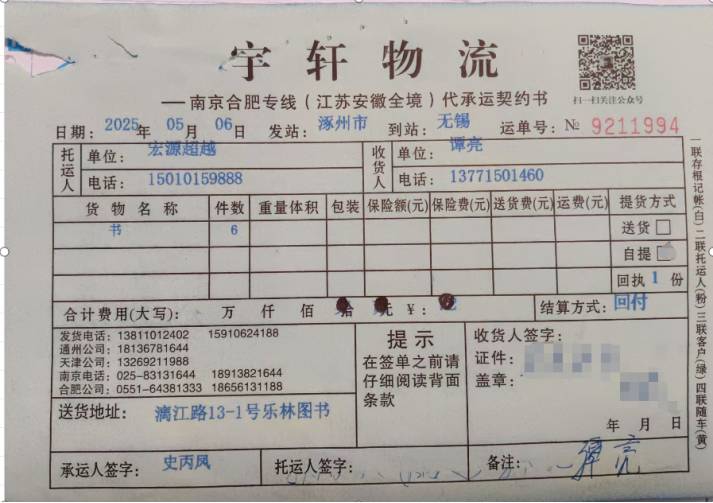 宇轩物流
扫一扫关注公众号
—南京合肥专线(江苏安徽全境)代承运契约书
日期：2025年 05月 06日 发站：涿州市 到站：无锡 运单号：№ 9211994
托运人 单位：宏源超越 收货人 单位：谭亮
电话：15010159888 电话：13771501460
货物名称 件数 重量体积 包装 保险额(元) 保险费(元) 送货费(元) 运费(元) 提货方式
书 6 送货
自提
回执 1 份
合计费用(大写)： 万 仟 佰 拾 元 ¥： 结算方式：回付
发货电话：13811012402 15910624188
通州公司：18136781644
天津公司：13269211988
南京电话：025-83131644 18913821644
合肥公司：0551-64381333 18656131188
提示
在签单之前请
仔细阅读背面
条款
收货人签字：
证件：
盖章：
年 月 日
送货地址：漓江路13-1号乐林图书
承运人签字：史丙凤 托运人签字： 备注： 谭亮
一联存根记帐(白)二联托运人(粉)三联客户(绿)四联随车(黄)